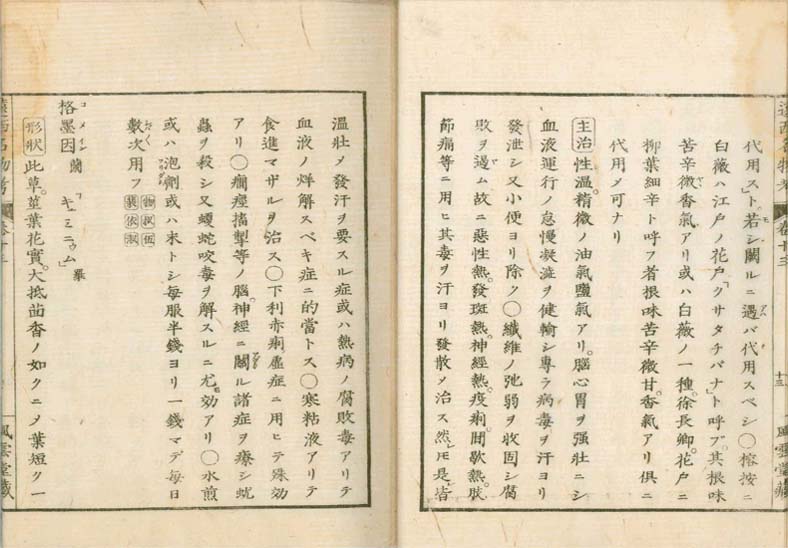 代用スト。若シ闕ルニ遇バ代用スベシ〇榕按ニ
白薇ハ江戸ノ花戸「クサタチバナ」ト呼ブ。其根味
苦辛微香氣アリ或ハ白薇ノ一種。徐長卿。花戸ニ
柳葉細辛ト呼フ者根味苦辛微甘。香氣アリ俱ニ
代用メ可ナリ
主治 性温。稍微ノ油氣鹽氣アリ。腦心胃ヲ强壮ニシ
血液運行ノ怠慢凝滋ヲ健輸シ專ラ病毒ヲ汗ヨリ
發泄シ又小便ヨリ除ク〇纖維ノ弛弱ヲ收固シ腐
敗ヲ遏ム故ニ惡性熱。發斑熱。神經熱。疫痢。間歇熱。肢
節痛等ニ用ヒ其毒ヲ汗ヨリ發散メ治ス然ドモ是皆
温壮メ發汗ヲ要スル症或ハ熱病ノ腐敗毒アリテ
血液ノ烊解スベキ症ニ的當トス〇寒粘液アリテ
食進マザルヲ治ス〇下利赤痢虚症ニ用ヒテ殊効
アリ〇癇痙搐掣等ノ腦。神經ニ關ル諸症ヲ療シ蚘
蟲ヲ殺シ又蝮蛇咬毒ヲ解スルニ尤。効アリ〇水煎
或ハ泡劑或ハ末トシ毎服半錢ヨリ一錢マデ毎日
數次用フ
格墨因 コメイン 蘭 「キュミニウム」羅
形狀 此草。莖葉花實。大抵茴香ノ如クニメ葉短ク一
遠西名物考 卷十三 十三 風雲堂藏